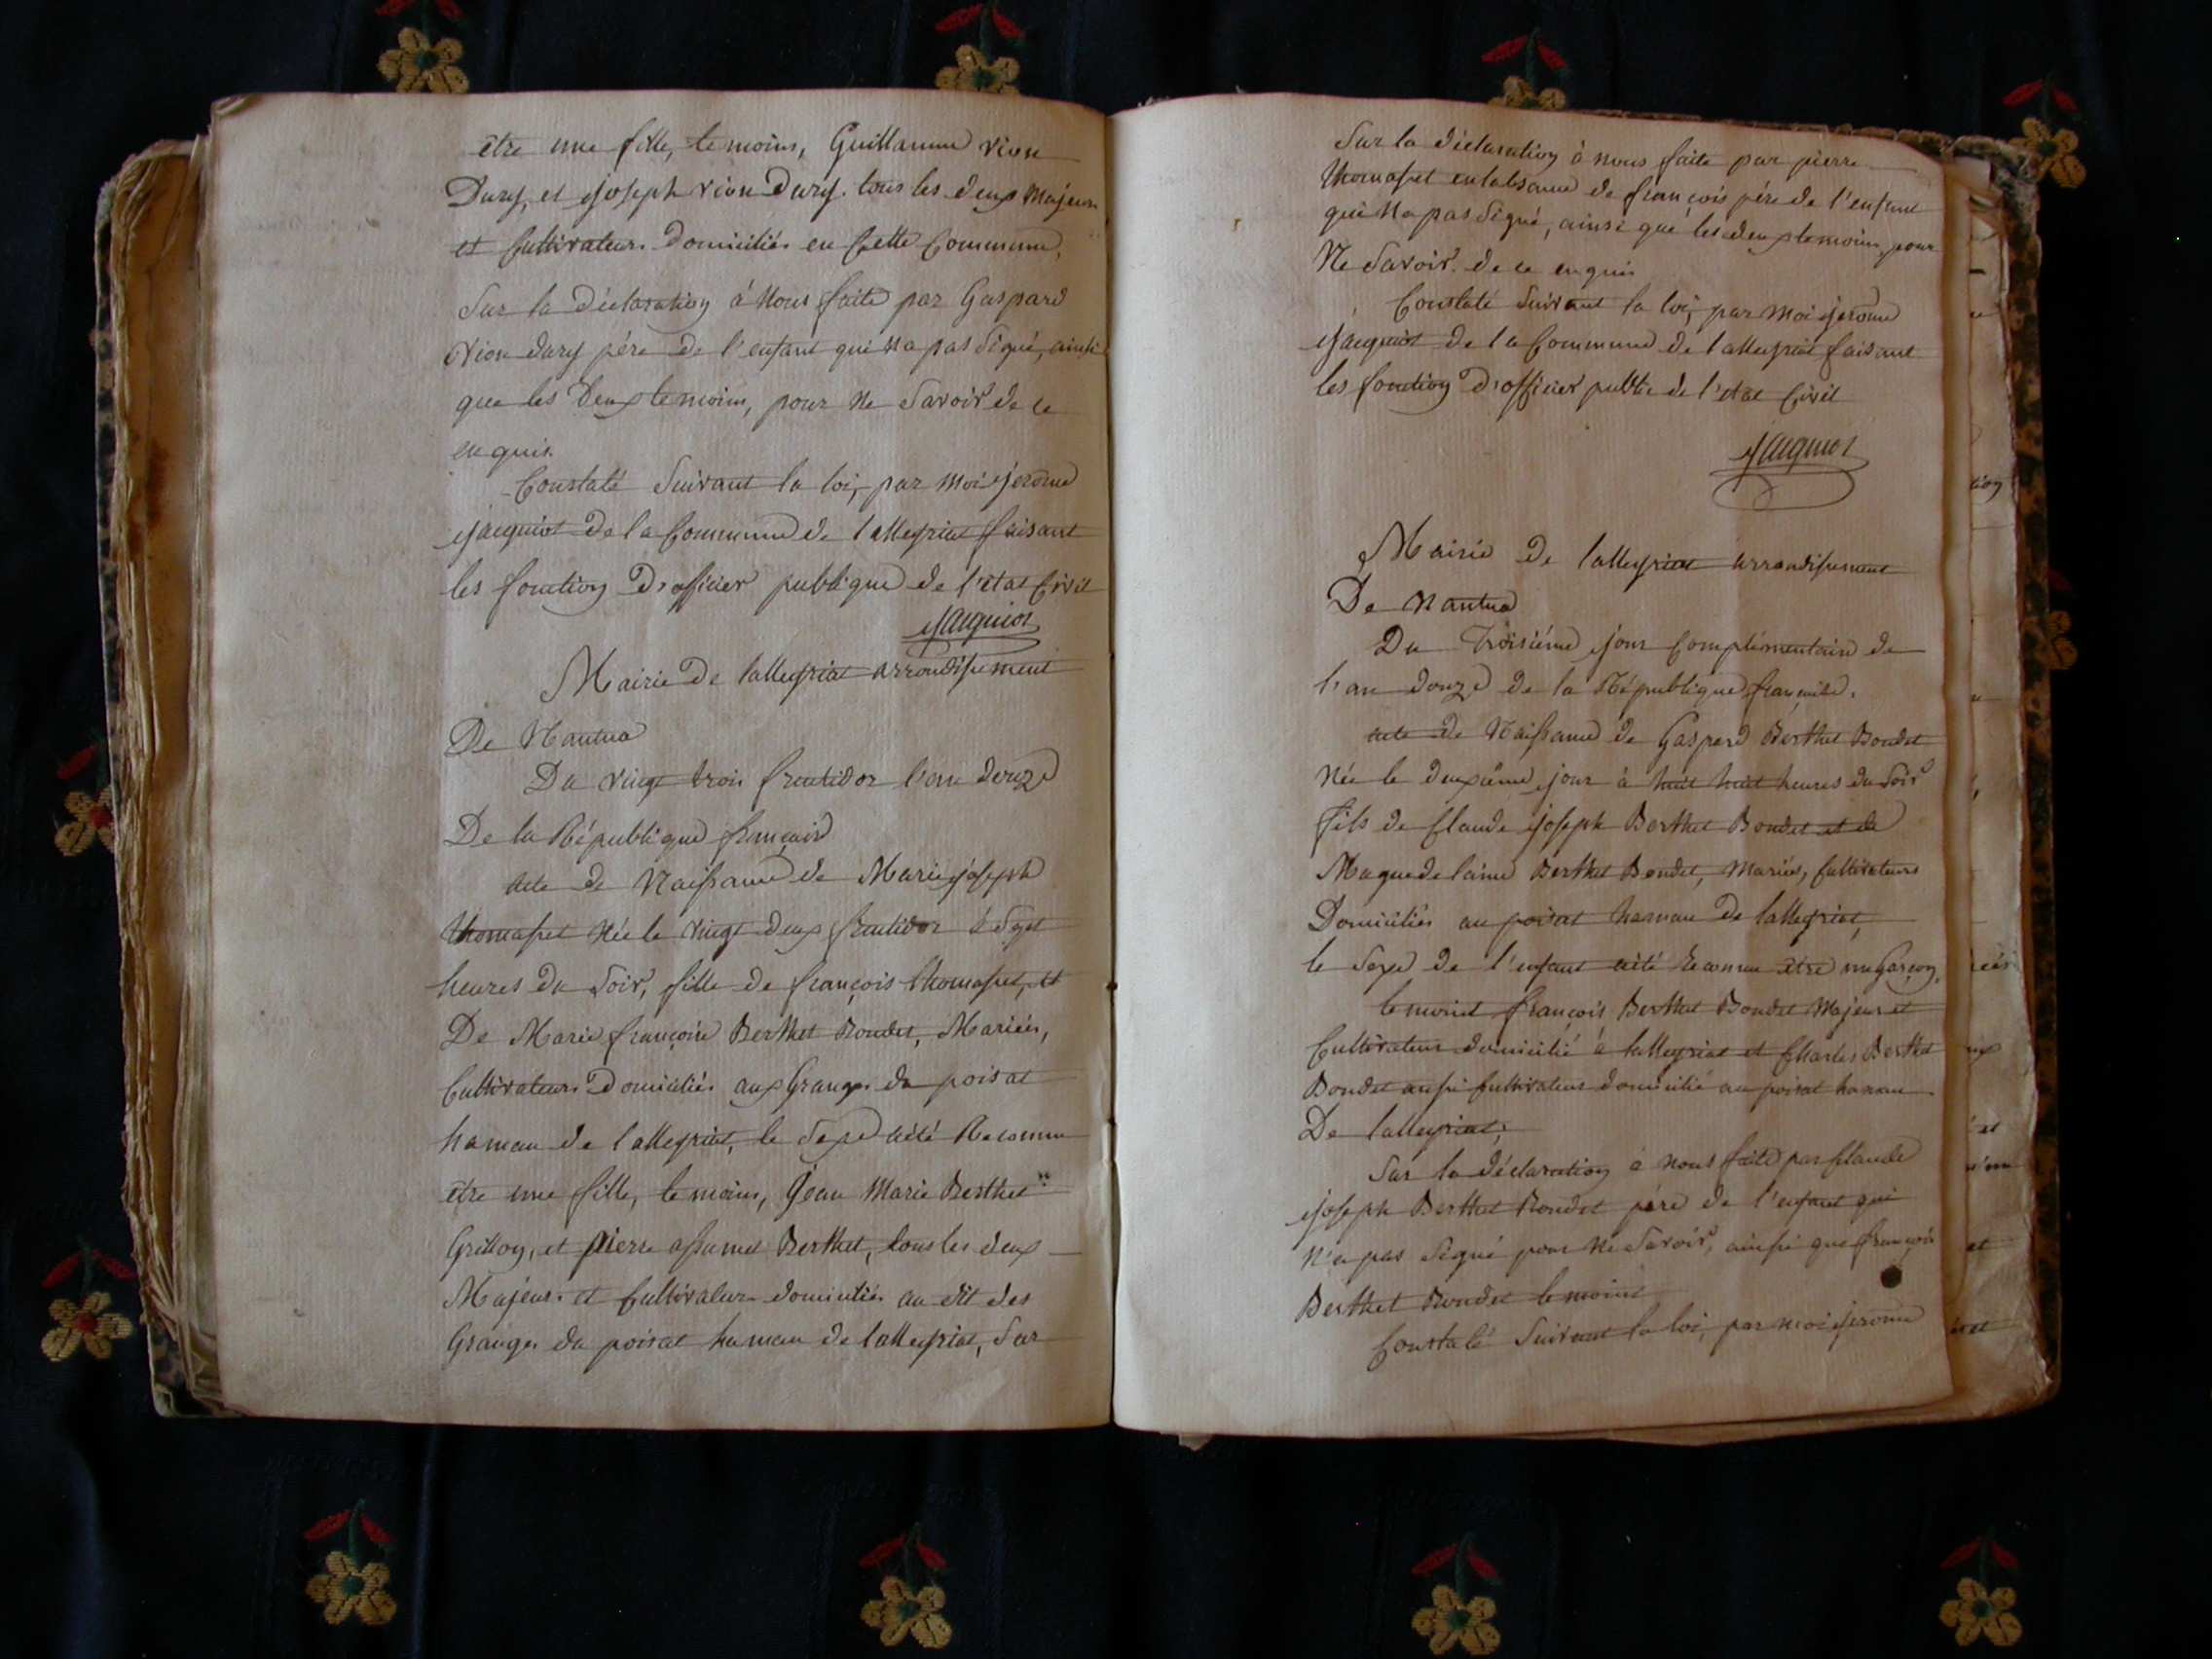 être une fille, temoins, Guillaume vion
Dury, et joseph vion Dury. tous les deux Majeurs
et Cultivateurs Domiciliés en Cette Commune,
Sur la déclaration à Nous faite par Gaspard
Vion dury pére de l'enfant qui na pas Signé, ainsi
que les Deux temoins, pour Ne Savoir de ce
enquis.
Constaté Suivant la loi, par Moi jerome
jacquiot de la Commune de lalleyriat faisant
les fonction D'officier publique de l'état Civil
jacquiot
Mairie de lalleyriat arrondissement
De Nantua
Du vingt trois fructidor l'an douze
De la République français
acte de Naissance de Marie joseph
thomasset Née le vingt deux fructidor à Sept
heures du Soir, fille de françois thomasset, et
De Marie françoise Berthet Bondet, Mariés,
Cultivateurs Domiciliés aux Granges du poisat
hameau de lalleyriat, le Sexe aété Reconnu
être une fille, temoins, Jean Marie Berthet
Grillon, et pierre assumet Berthet, tous les deux
Majeurs et Cultivateurs domiciliés au dit des
Granges du poisat hameau de lalleyriat, Sur
Sur la déclaration à nous faite par pierre
thomasset enlabsance de françois pére de l'enfant
qui Na pas Signé, ainsi que les deux temoins, pour
Ne Savoir. de ce enquis
Constaté Suivant la loi, par Moi jerome
jacquiot de la Commune de lalleyriat faisant
les fonction d'officier public de l'etat Civil
jacquiot
Mairie de lalleyriat arrondissement
De Nantua
Du Troisiéme jour Complémentaire de
l'an douze de la République française.
acte de Naissance de Gaspard Berthet Bondet
Née le deuxiéme jour à huit huit heures du Soir
fils de Claude joseph Berthet Bondet et de
Maguedelaine Berthet Bondet, Mariés, Cultivateurs
Domiciliés au poisat hameau de lalleyriat,
le Sexe de l'enfant aété Reconnu être un Garçon,
temoins françois Berthet Bondet Majeur et
Cultivateur domicilié à lalleyriat et Charles Berthet
Bondet aussi Cultivateur domicilié au poisat hameau
De lalleyriat;
Sur la déclaration à nous faite par Claude
joseph Berthet Bondet pére de l'enfant qui
N'a pas Signé pour Ne Savoir, ainsi que françois
Berthet Bondet temoins
Constaté Suivant la loi, par moi jerome